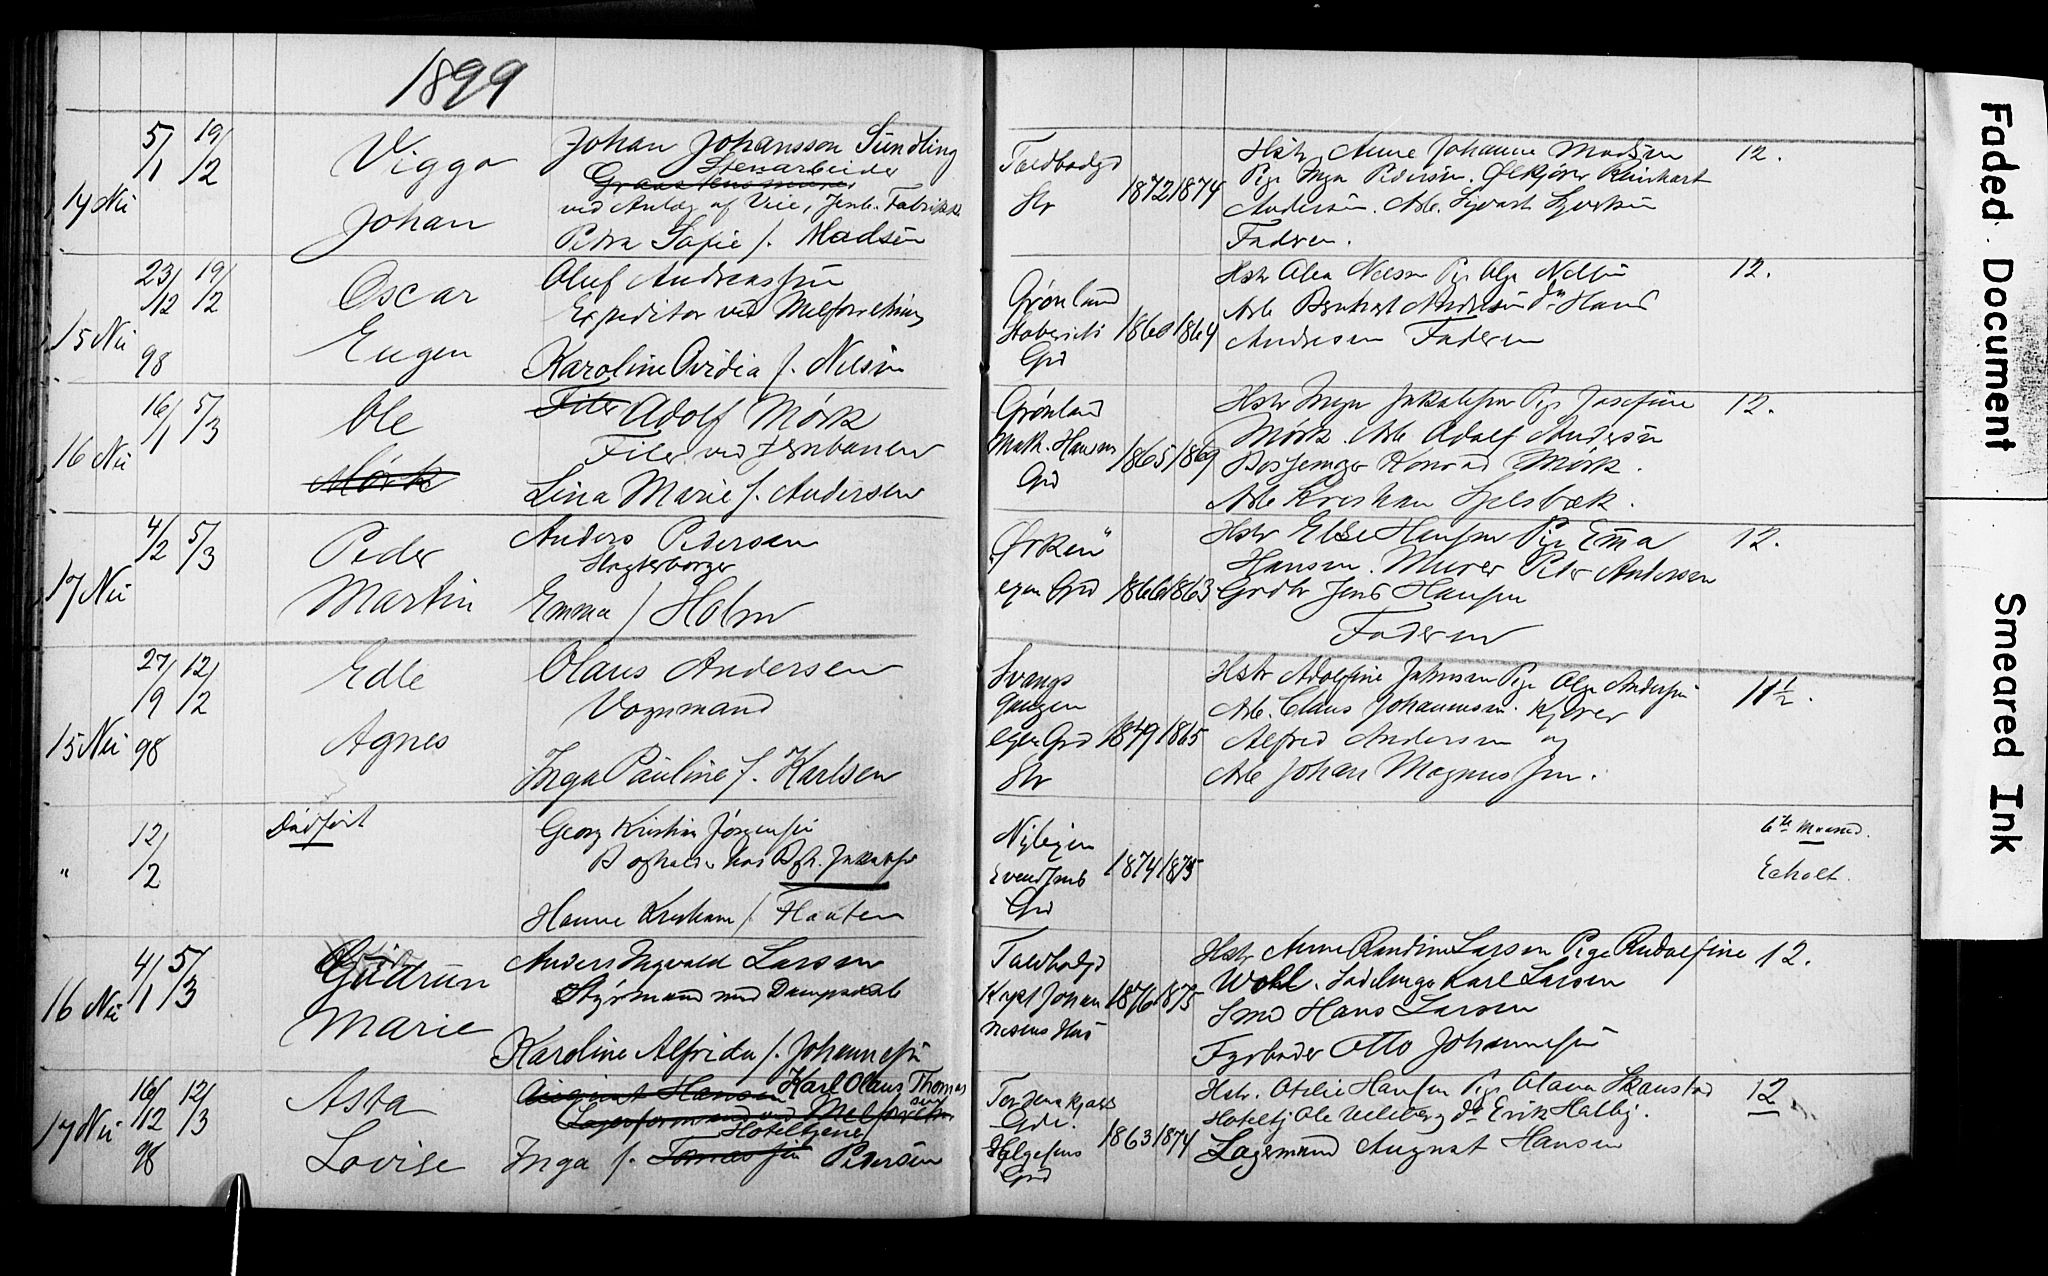 1899
14 Nii 5/1 19/2 Viggo Johan
Johan Johansson Sundling
Stenarbeider
ved Anlæg af Veie, Jernb. Fabrikk
Petra Sofie f. Madsen
Toldbodgd
Str
1872 1874
Hstr Anne Johanne Madsen
Pige Inga Pedersen. Ølkjører Reinhart
Andersen. Arb. Sigvart
Faderen.
12.
15 Nii 23/12 98 19/2 Oscar Eugen
Oluf Andreassen
Expeditør ved Melforretning
Karoline Ovidia f. Nilsen
Grønland
Grd
1860 1864
Hstr Olea Nilsen Pg Olga Nilsen
Arb Bernhart Andersen Do Hans
Andresen Faderen
12.
16 Nii 16/1 5/3 Ole Mørk
Filer Adolf Mørk
Filer ved Jernbanen
Lina Marie f. Andersen
Grønland
Math. Hansens
Grd
1865 1869
Hstr Inga Jakobsen Pige Josefine
Mørk Arb Adolf Andersen
Konrad Mørk.
Arb Kristian
12.
17 Nii 4/2 5/3 Peder Martin
Anders Pedersen
Slagterborger
Emma f Holm
"Ørken"
egen Grd
1866 1863
Hstr Else Hansen Pig Emma
Hansen. Murer Peter Andersen
Grdbr Jens Hansen
Faderen
12.
15 Nii 27/9 98 12/2 Edle Agnes
Olaus Andersen
Vognmand
Inga Pauline f. Karlsen
Svangs
gangen
egen Grd
Str
1849 1865
Hstr Adolfine Johnsen Pige Olga Andersen
Arb. Claus Johannesen. Kjører
Alfred Andersen og
Arb Johan Magnussen.
11 1/2.
" 12/2 Dødført
Georg Kristian Jørgensen
Bogholder hos Jakobsen
Hanne Kristiane f Hauten
Nybyen
Svendsens
Grd
1874 1875
6te Maaned.
Echolt.
16 Nii 4/1 5/3 Gudrun Marie
Anders Ingvald Larsen
Styrmand med Dampskib
Karoline Alfrida f. Johannesen
Toldbodgd
Kapt Johan
nesens Hus
1876 1875
Hstr Anne Randine Larsen Pige Rudolfine
Wohl. Sadelmager Karl Larsen
Smed Hans Larsen
Fyrbøder Otto Johannesen
12.
17 Nii 16/12 98 12/3 Asta Lovise
August Hansen Karl Olaus Thomas
sen
Lagerformand ved Melforretn
Hoteltjener
Inga f. Tomassen Pedersen
Tordenskjolds
Gde.
Helgesens
Grd
1863 1874
Hstr. Otilie Hansen Pige Olava Skaustad
Hoteltj Ole Velleberg do Erik Halby.
Lagermand August Hansen
12
Faded Document
Smeared Ink